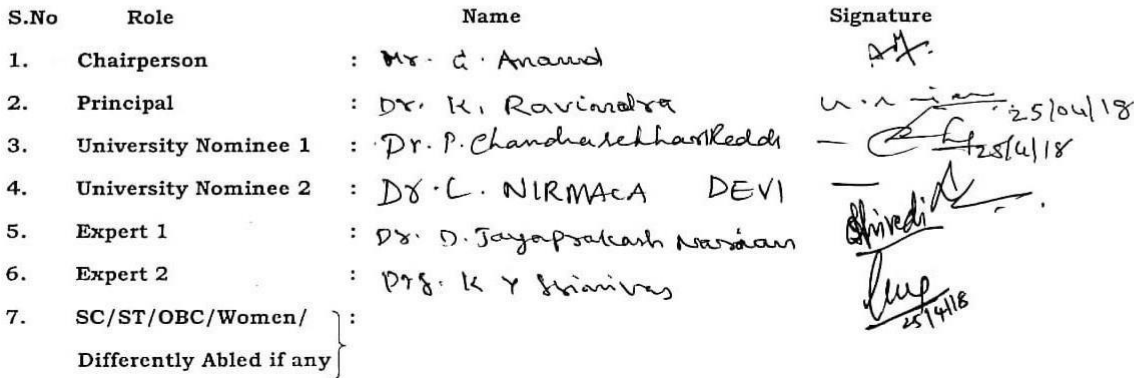 S.No Role Name Signature
1. Chairperson : Mr. G. Anand
2. Principal : Dr. K. Ravindra 25/04/18
3. University Nominee 1 : Dr. P. Chandrasekhar Reddy 25/4/18
4. University Nominee 2 : Dr. C. NIRMALA DEVI
5. Expert 1 : Dr. D. Jayaprakash Narayan
6. Expert 2 : K Y Srinivas
25/4/18
7. SC/ST/OBC/Women/ :
Differently Abled if any